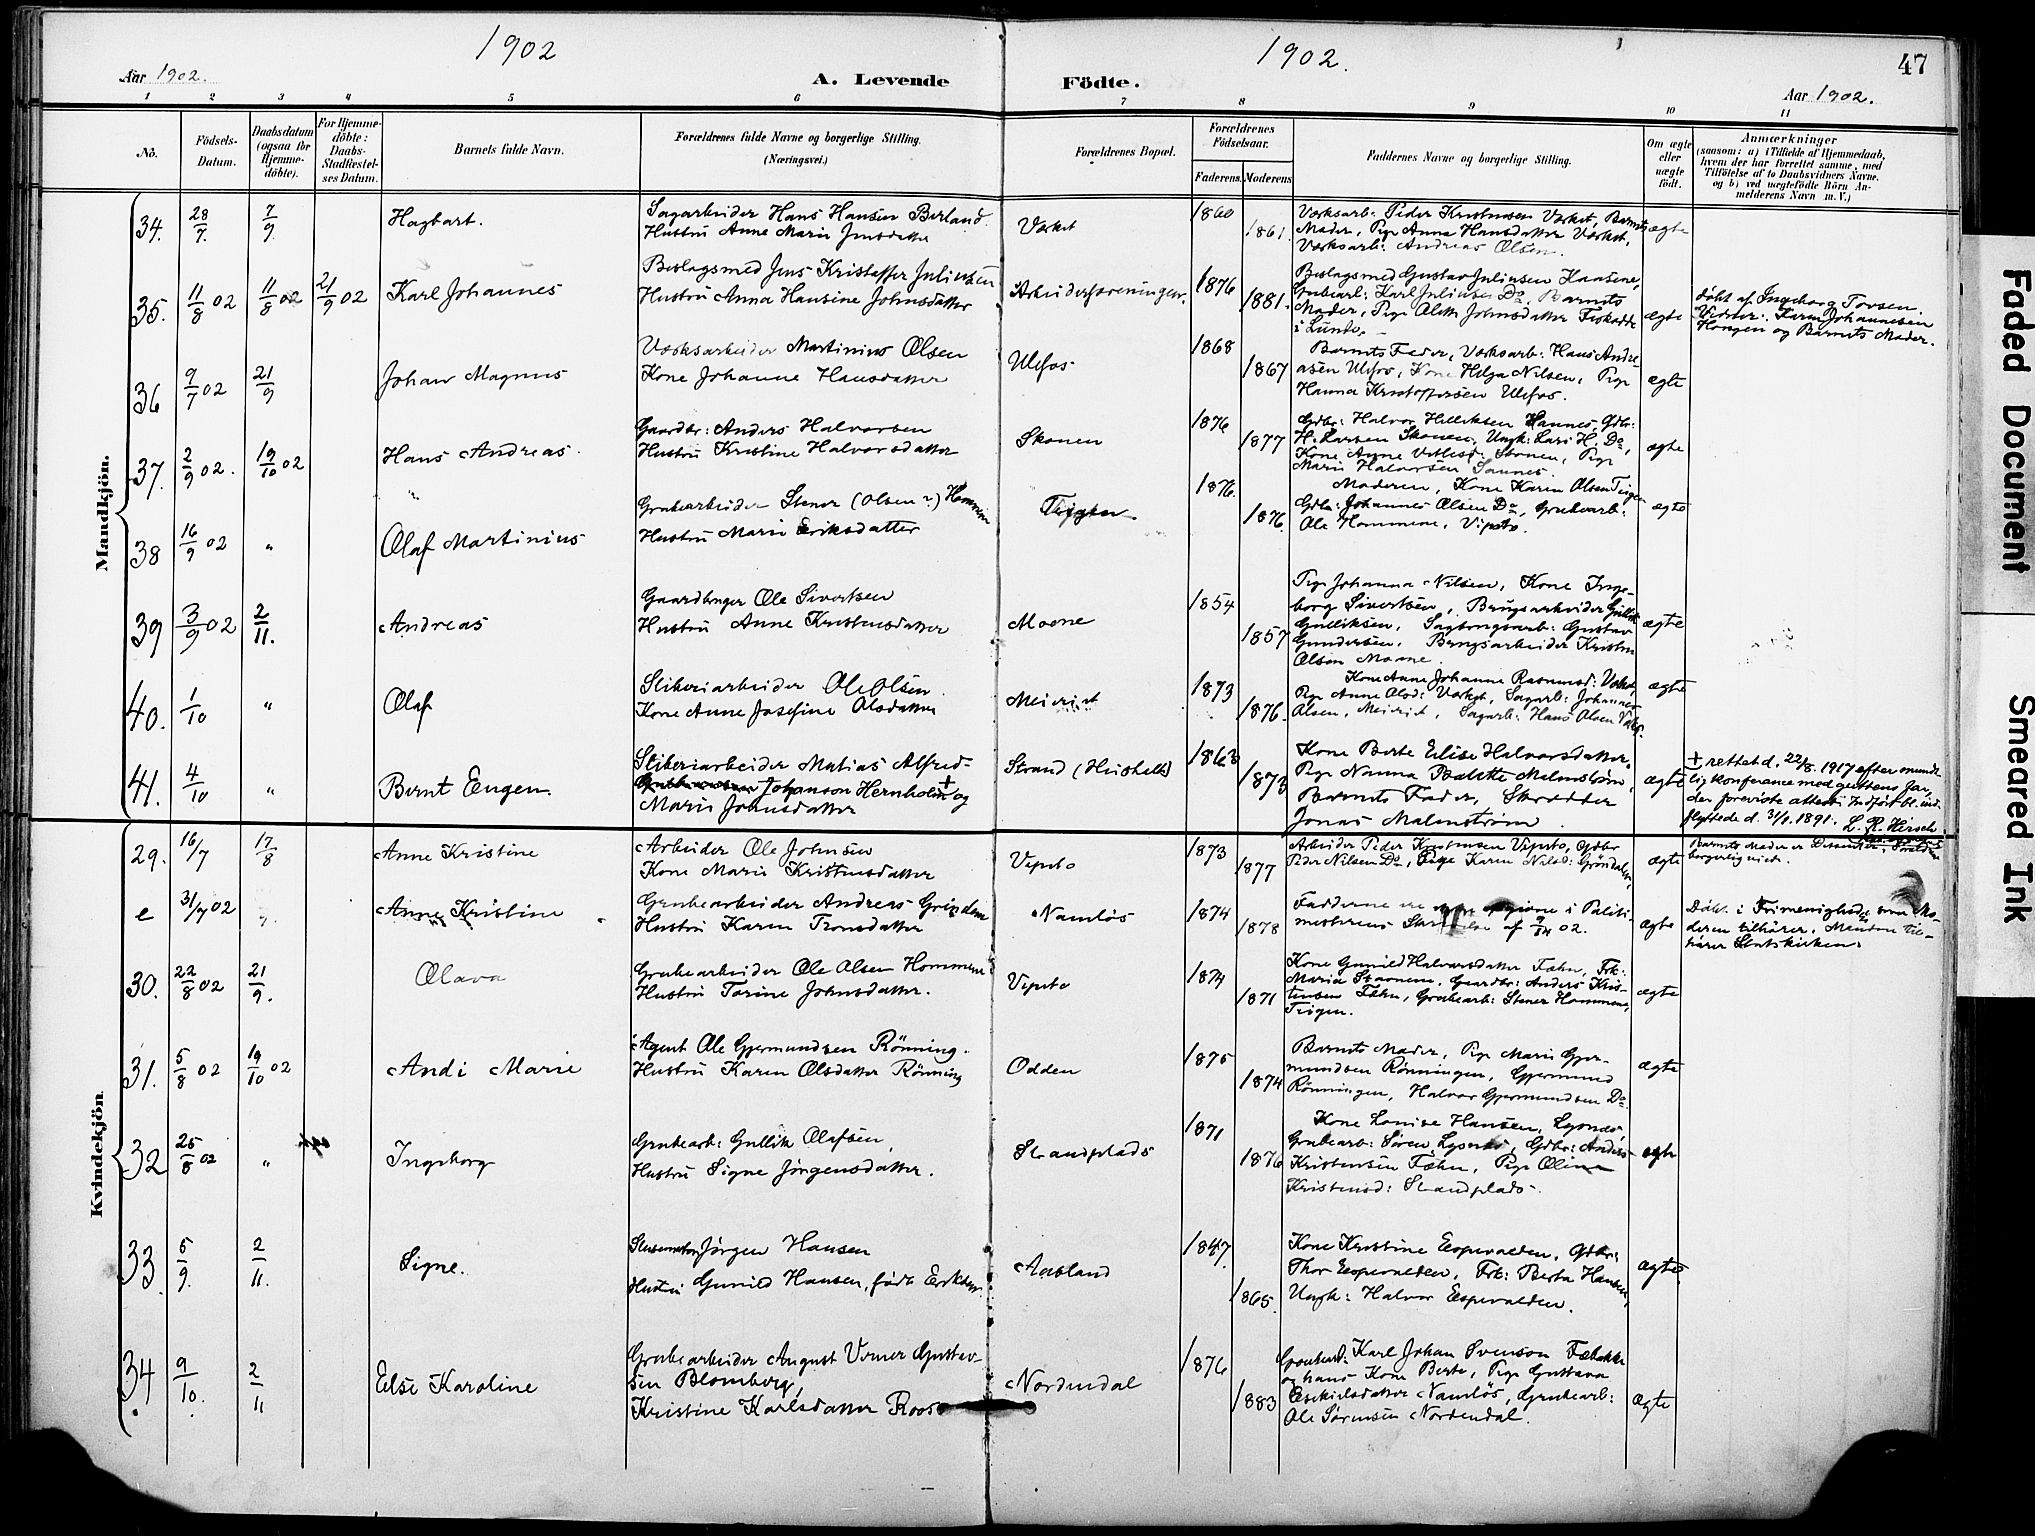 1902
1902.
47
Aar 1902.
A. Levende
Födte.
Aar 1902.
1 2 3 4 5 6 7 8 9 10 11
No.
Födsels-
Datum.
Daabsdatum
(ogsaa for
Hjemme-
döbte).
For Hjemme-
döbte:
Daabs-
Stadfæstel-
ses Datum.
Barnets fulde Navn.
Forældrenes fulde Navne og borgerlige Stilling.
(Næringsvei.)
Forældrenes Bopæl.
Forældrenes
Födselsaar.
Faderens. Moderens.
Faddernes Navne og borgerlige Stilling.
Om ægte
eller
uægte
födt.
Anmærkninger
(saasom: a) i Tilfælde af Hjemmedaab,
hvem der har forrettet samme, med
Tilföielse af to Daabsvidners Navne,
og b) ved uægtefödte Börn An-
melderens Navn m. V.)
Mandkjön.
34. 28/7. 7/9
Hagbart.
Sagarbeider Hans Hansen Berland
Hustru Anne Marie Jensdatter
Værket
1860
1861.
Værksarb: Peder Kristensen Værket, Barnets
Moder, Pige Anna Hansdatter Værket,
Værksarb: Andreas Olsen.
ægte
35. 11/8 02 11/8 02 21/9 02
Karl Johannes
Beslagsmed Jens Kristoffer Juliussen
Hustru Anna Hansine Johnsdatter
Arbeiderforeningen.
1876
1881.
Beslagsmed Gustav Juliusen Kaasene,
Grubearb: Karl Juliusen Do, Barnets
Moder, Pige Aleth Johnsdatter
i Lunde.
ægte
döbt af Ingeborg Tovsen.
Vidner: Karen Johannesen
Haugen og Barnets Moder.
36 9/7 02 21/9
Johan Magnus
Værksarbeider Martinius Olsen
Kone Johanne Hansdatter
Ulefos
1868
1867
Barnets Fader, Værksarb: Hans Andre-
asen Ulefos, Kone Helga Nilsen, Pige
Hanna Kristoffersen Ulefos.
ægte
37. 2/9 02. 19/10 02
Hans Andreas.
Gaardbr: Anders Halvorsen
Hustru Kristine Halvorsdatter
Skonen
1876
1877
Gdbr: Halvor Gdbr:
H. Larsen Skonen, Ungk: Lars H. Do,
Kone Anne Skonen, Pige
Marie Halvorsen
ægte
38 16/9 02 "
Olaf Martinius
Grubearbeider Stener (Olsen ?) Hommen
Hustru Marie Eriksdatter
Teigen
1876.
1876.
Moderen, Kone Karen Olsen Teigen
Gdbr: Johannes Olsen Do, Grubearb:
Ole Hommene, Vipeto.
ægte
39 3/9 02 2/11.
Andreas
Gaardbruger Ole Sivertsen
Hustru Anne Kristensdatter
Moene
1854
1857
Pige Johanna Nilsen, Kone Inge-
borg Sivertsen, Brugsarbeider Gullik
Gulliksen, Sagbrugsarb: Gustav
Gundersen, Brugsarbeider Kristen
Olsen Moene.
ægte
40. 1/10 "
Olaf
Sliberiarbeider Ole Olsen.
Kone Anne Josefine Olsdatter
Meieriet
1873
1876.
Kone Anne Johanne Rasmusd: Værket,
Pige Anne Olsd: Værket, Sagarb: Johannes
Olsen, Meieriet, Sagarb: Hans Olsen
ægte
41. 4/10 "
Bernt Eugen.
Sliberiarbeider Matias Alfred
Johanson Hernholm + og
Marie Johnsdatter
Strand (Heishalla)
1863
1873
Kone Berte Elise Halvorsdatter,
Pige Nanna Malmström,
Barnets Fader, Skrædder
Jonas Malmström
ægte
+, rettet d. 22/8. 1917 efter mundt-
lig konference med guttens far,
der foreviste attest: Indført bl. ind-
flyttede d. 31/8. 1891. L. R. Hirsch
Kvindekjön
29. 16/7 17/8
Anne Kristine
Arbeider Ole Johnsen
Kone Marie Kristensdatter
Vipeto
1873
1877
Arbeider Peder Kristensen Vipeto, Gdbr
Peder Nilsen Do, Pige Karen Nilsd: Gröndalen,
ægte
Barnets Moder er Dissenter, Forældrene
borgerlig viede.
e 31/7 02
Anne Kristine
Grubearbeider Andreas Grinden
Hustru Karen Tronsdatter
Namløs
1874
1878
Fadderne ere i Politi-
mesterens af 02.
ægte
Döbt. i Frimenighed som Mo-
deren tilhörer. Manden til-
hörer Statskirken.
30. 22/8 02 21/9.
Olava
Grubearbeider Ole Olsen Hommene
Hustru Torine Johnsdatter.
Vipeto
1874
1871
Kone Gunild Halvorsdatter Fæhn, Frk:
Maria Skonene, Gaardbr: Anders Kris-
tensen Fæhn, Grubearb: Stener Hommene,
Teigen.
ægte
31. 5/8 02 19/10 02
Andi Marie
Agent Ole Gjermundsen Rönning.
Hustru Karen Olsdatter Rönning
Odden
1875
1874
Barnets Moder, Pige Marie Gjer-
mundsen Rönningen, Gjermund
Rönningen, Halvor Gjermundsen Do.
ægte
32 25/8 02 "
Ingeborg
Grubearb: Gullik Olafsen,
Hustru Signe Jörgensdatter.
Strandplads
1871
1876
Kone Lovise Hansen, Lysnes
Grubearb: Søren Lysnes, Gdbr: Anders
Kristensen Fæhn, Pige Oline
Kristensd: Strandplads.
ægte
33 5/9. 2/11.
Signe.
Slusemester Jörgen Hansen
Hustru Gunild Hansen, födt Eriksen.
Aasland
1847.
1865.
Kone Kristine Espevalden, Gdbr:
Thor Eespevalden, Frk: Berta Hansen,
Ungk: Halvor Eespevalden.
ægte
34 9/10. 2/11
Else Karoline
Grubearbeider August Verner Gustav-
sen Blomberg,
Kristine Karlsdatter Roos
Nordendal
1876
1883
Grubearb: Karl Johan Svenson
og hans Kone Berte, Pige Gustava
Eeskielsdatter Namløs, Grubearb:
Ole Sørensen Nordendal.
ægte
Faded Document
Smeared Ink